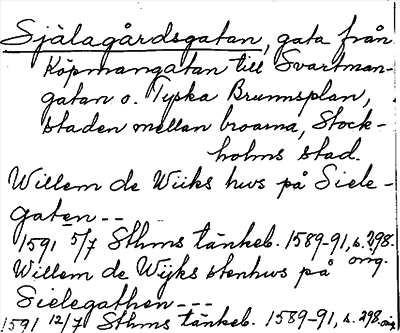 Själagårdsgatan, gata från
Köpmangatan till Svartman-
gatan o. Tyska Brunnsplan,
staden mellan broarna, Stock-
holms stad.
Willem de Wiiks hws på Siele-
gaten --
1591 5/7 Sthms tänkeb. 1589-91, s. 298.
orig.
Willem de Wijks stenhws på
Sielegathen ---
1591 12/7 Sthms tänkeb. 1589-91, s. 298. orig